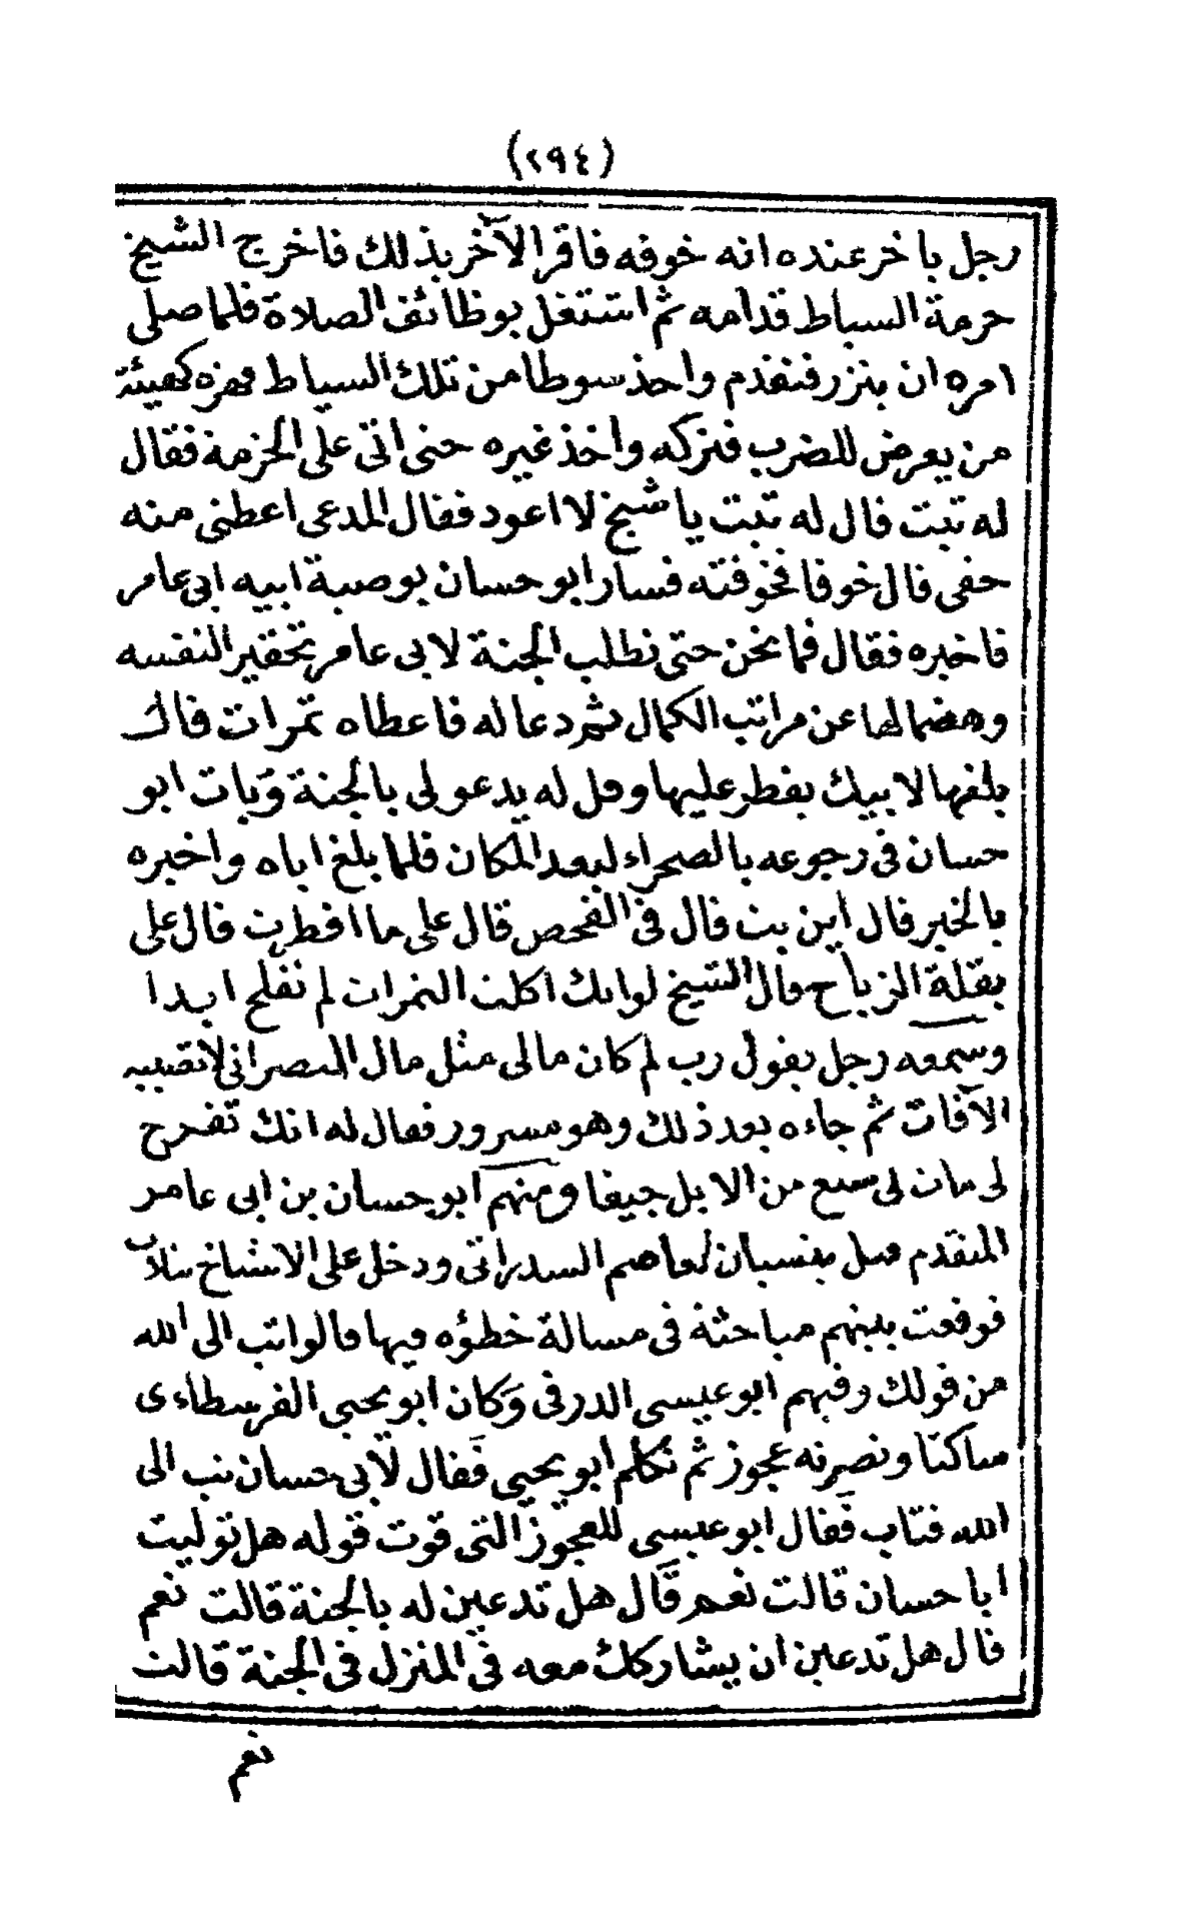 (٢٩٤)
رجل باخر عنده انه خوفه فاقر الآخر بذلك فاخرج الشيخ
حزمة السياط قدامه ثم اشتغل بوظائف الصلاة فلما صلى
امره ان ينزر فتقدم واخذ سوطا من تلك السياط فهزه كهيئة
من يعرض للضرب فتركه واخذ غيره حتى اتى على الحزمة فقال
له تبت قال له تبت يا شيخ لا اعود فقال المدعى اعطنى منه
حقى قال خوفا فخوفته فسار ابو حسان بوصية ابيه ابى عامر
فاخبره فقال فما نحن حتى نطلب الجنة لابى عامر تحقيرا لنفسه
وهضما لها عن مراتب الكمال ثم دعا له فاعطاه تمرات قال
بلغها لابيك يفطر عليها وقل له يدعو لى بالجنة وبات ابو
حسان فى رجوعه بالصحراء لبعد المكان فلما بلغ اباه واخبره
بالخبر قال اين بت قال فى الفحص قال على ما افطرت قال على
بقلة الزباح قال الشيخ لو انك اكلت التمرات لم تفلح ابدا
وسمعه رجل يقول رب لم كان مالى مثل مال النصرانى لا تصيبه
الآفات ثم جاءه بعد ذلك وهو مسرور فقال له انك تفرح
لى مات لى سبع من الابل جيفا ومنهم ابو حسان بن ابى عامر
المتقدم قيل بنسيان لعاصم السدراتى ودخل على الاشياخ بتلات
فوقعت بينهم مباحثة فى مسالة خطؤه فيها قالوا تب الى الله
من قولك وفيهم ابو عيسى الدرفى وكان ابو يحيى الفرسطاءى
ساكتا ونصرته عجوز ثم تكلم ابو يحيى فقال لابى حسان تب الى
الله فتاب فقال ابو عيسى للعجوز التى قوت قوله هل توليت
ابا حسان قالت نعم قال هل تدعين له بالجنة قالت نعم
قال هل تدعين ان يشاركك معه فى المنزل فى الجنة قالت
نعم